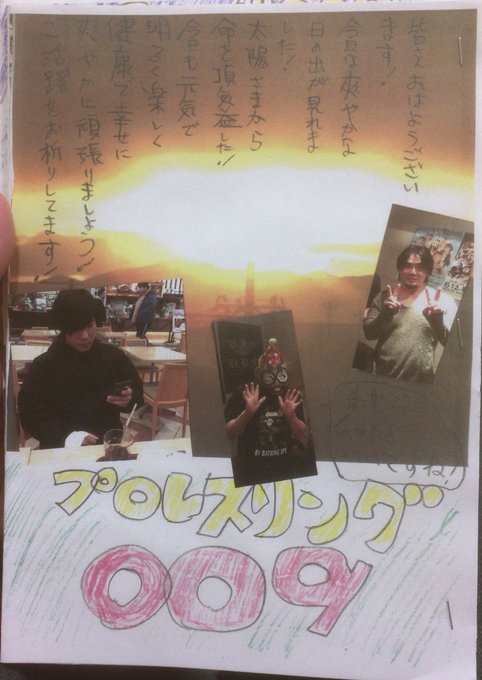 皆さんおはようござい
ます!
今日は爽やかな
日の出が見れま
した!
太陽さまから
命を頂きました!
今日も元気で
明るく楽しく
健康で幸せに
爽やかに頑張りましょう!
ご活躍をお祈りしてます!
ですね!
プロレスリング
009